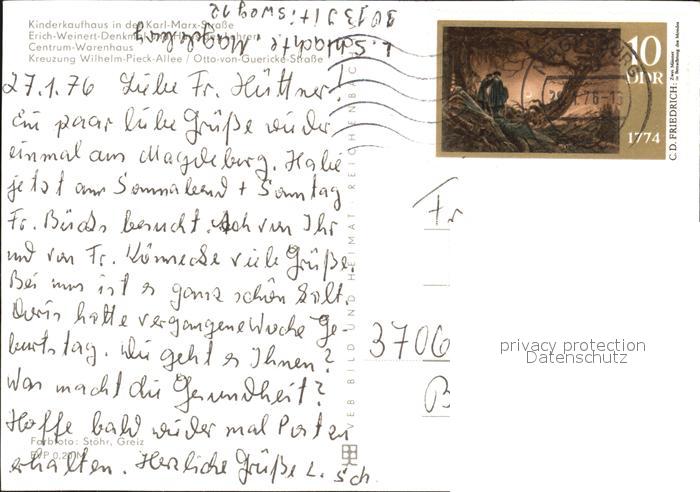 Kinderkaufhaus in der Karl-Marx-Straße
Erich-Weinert-Denkmal
Centrum-Warenhaus
Kreuzung Wilhelm-Pieck-Allee / Otto-von-Guericke-Straße
Magdeburg
27.1.76 Liebe Fr. Hüttner!
Ein paar liebe Grüße wieder
einmal aus Magdeburg. Habe
jetzt am Sonnabend + Sonntag
Fr. Büchs besucht. Ach von Ihr
und von Fr. Könnecke viele Grüße.
Bei uns ist es ganz schön kalt.
Doris hatte vergangene Woche Ge-
burtstag. Wie geht es Ihnen?
Was macht die Gesundheit?
Hoffe bald wieder mal Post zu
erhalten. Herzliche Grüße L. Sch.
Farbfoto: Stöhr, Greiz
EVP 0,20 M
VEB BILD UND HEIMAT · REICHENBACH
10
DDR
1774
C.D. FRIEDRICH:
Zwei Männer
in Betrachtung des Mondes
Fr
3706
B
privacy protection
Datenschutz